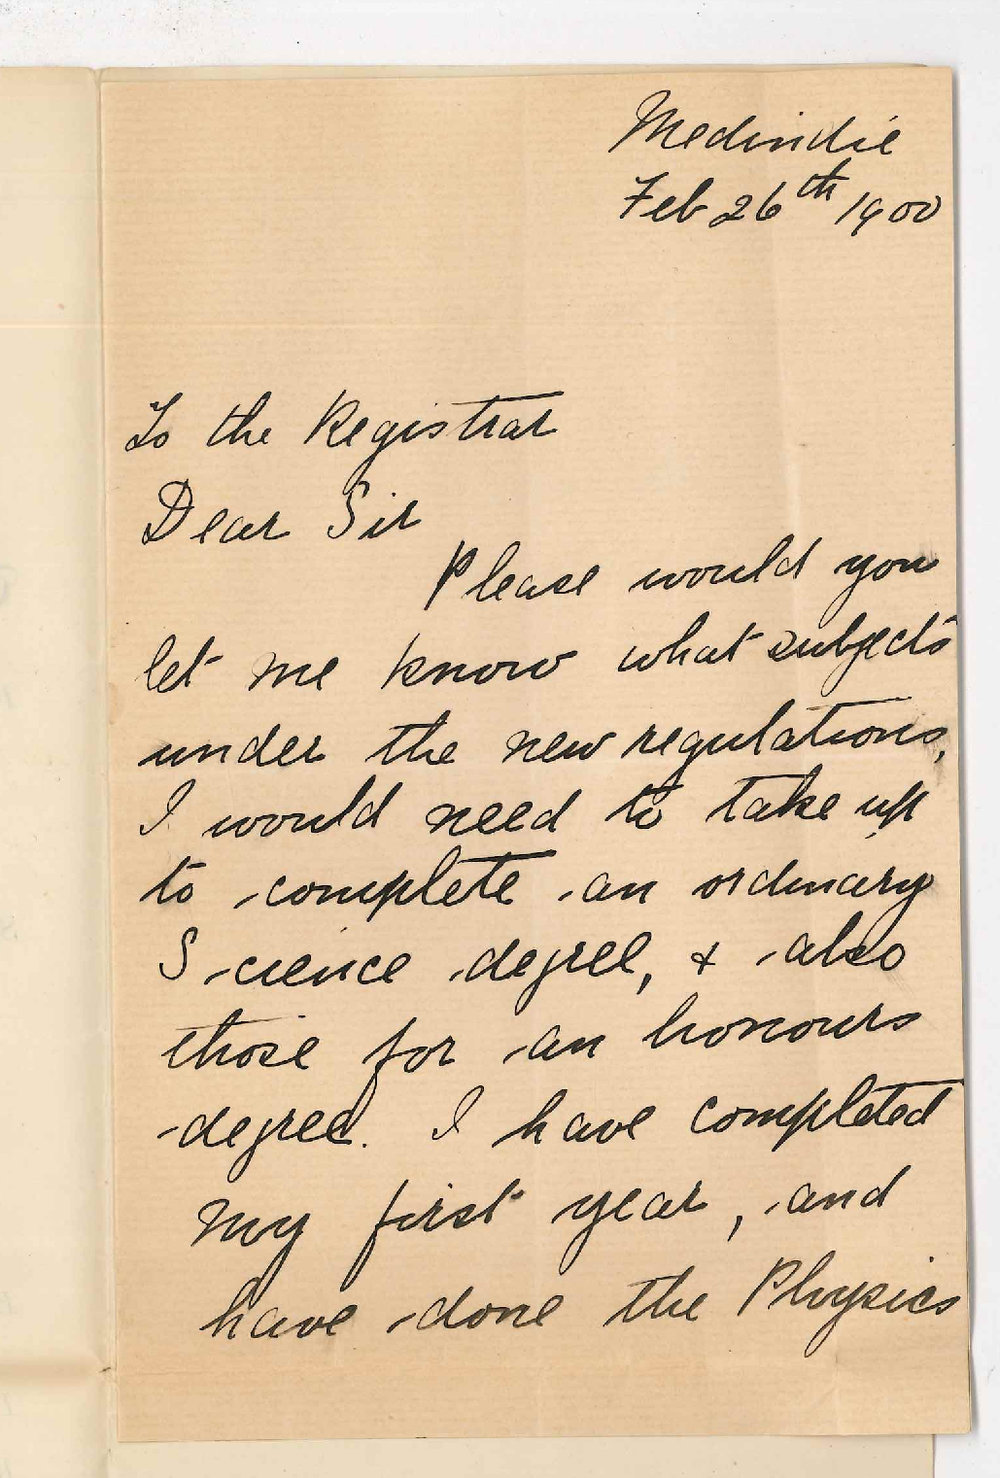 Medindie
Feb 26th 1900
To the Registrar
Dear Sir
Please would you
let me know what subjects
under the new regulations,
I would need to take up
to complete an ordinary
Science degree, & also
those for an honours
degree. I have completed
my first year, and
have done the Physics